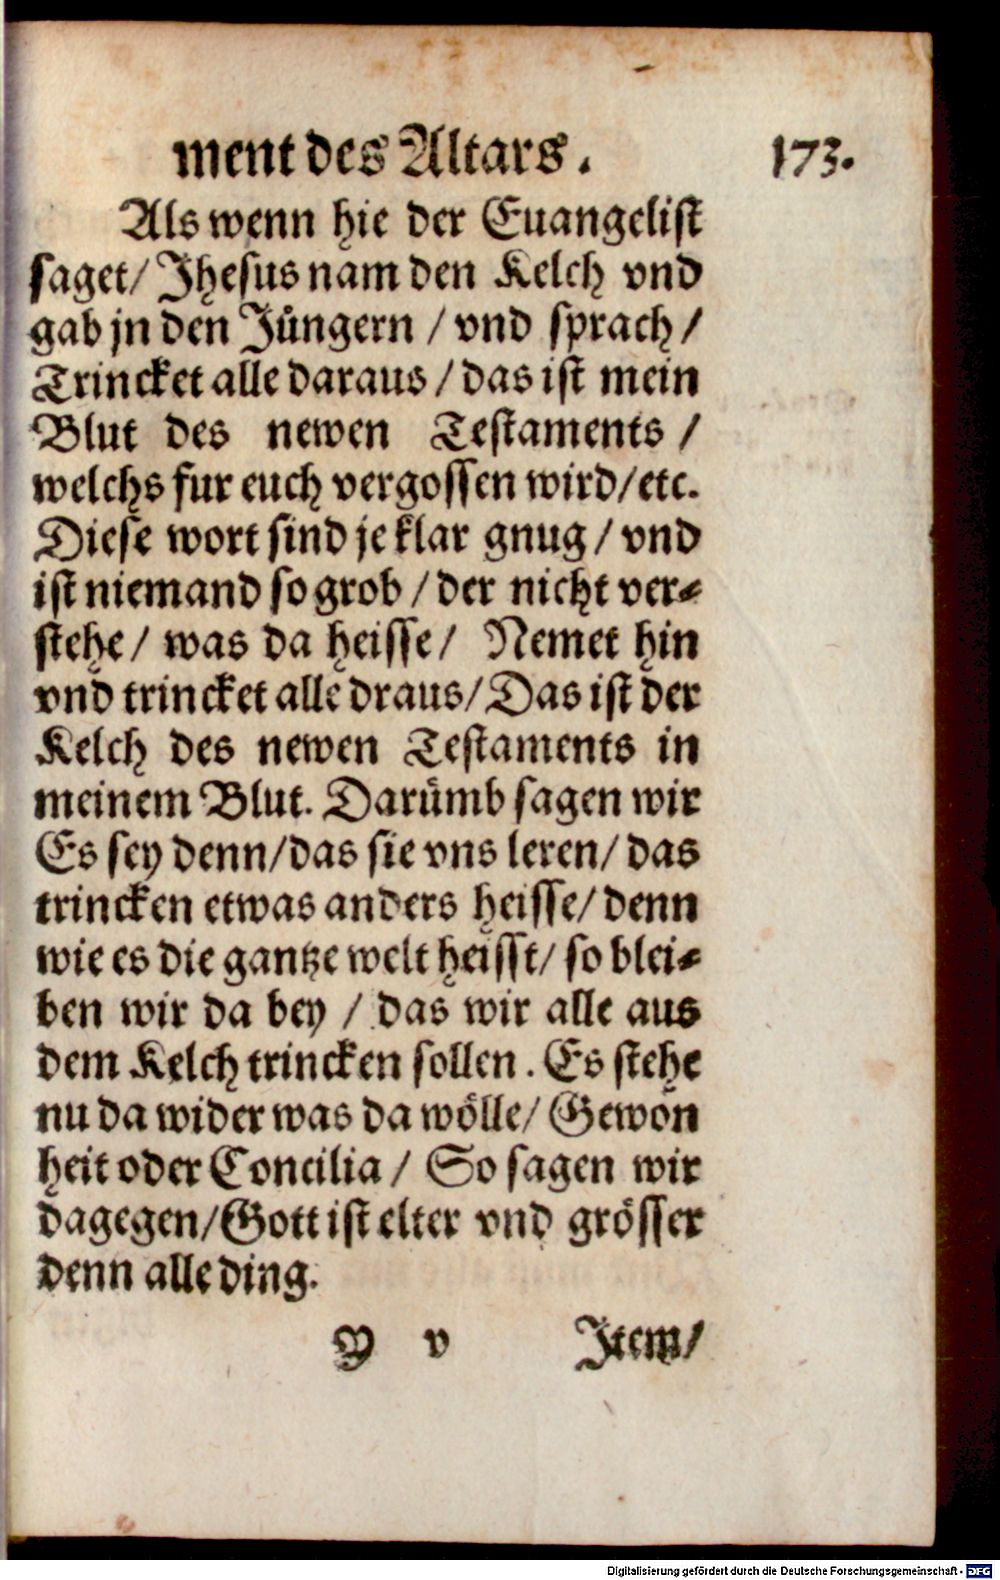 ment des Altars. 173.
Als wenn hie der Euangelist
saget/ Jhesus nam den Kelch vnd
gab jn den Jüngern / vnd sprach/
Trincket alle daraus / das ist mein
Blut des newen Testaments /
welchs fur euch vergossen wird/etc.
Diese wort sind je klar gnug / vnd
ist niemand so grob / der nicht ver-
stehe/ was da heisse/ Nemet hin
vnd trincket alle draus/ Das ist der
Kelch des newen Testaments in
meinem Blut. Darümb sagen wir
Es sey denn/das sie vns leren/ das
trincken etwas anders heisse/ denn
wie es die gantze welt heisst/ so blei-
ben wir da bey / das wir alle aus
dem Kelch trincken sollen. Es stehe
nu da wider was da wölle/ Gewon
heit oder Concilia / So sagen wir
dagegen/Gott ist elter vnd grösser
denn alle ding.
Y v Item/
Digitalisierung gefördert durch die Deutsche Forschungsgemeinschaft - DFG